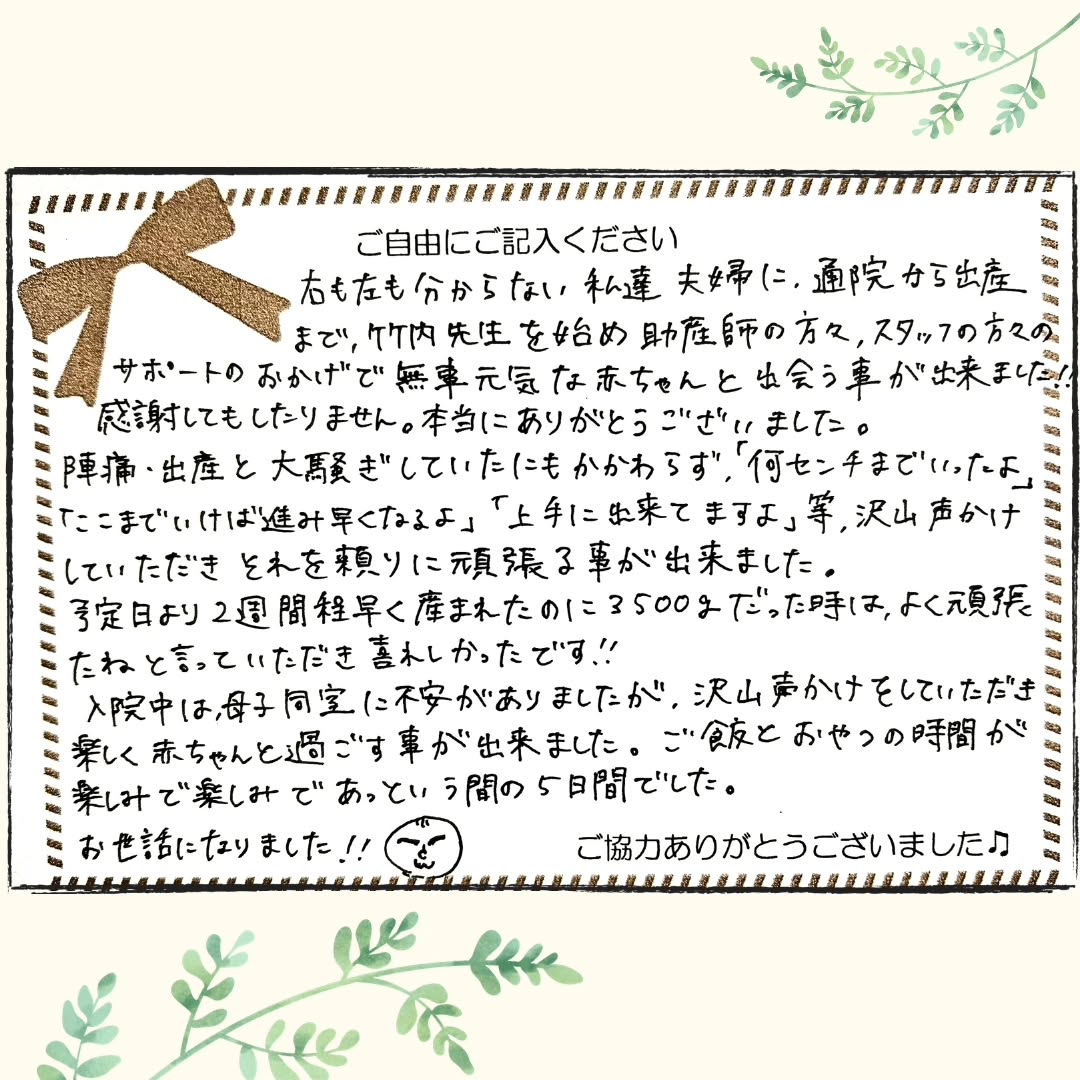 ご自由にご記入ください
右も左も分からない私達夫婦に、通院から出産
まで、竹内先生を始め助産師の方々、スタッフの方々の
サポートのおかげで無事元気な赤ちゃんと出会う事が出来ました!!
感謝してもしたりません。本当にありがとうございました。
陣痛・出産と大騒ぎしていたにもかかわらず、「何センチまでいったよ」
「ここまでいけば進み早くなるよ」「上手に出来てますよ」等、沢山声かけ
していただきそれを頼りに頑張る事が出来ました。
予定日より2週間程早く産まれたのに3500gだった時は、よく頑張
たねと言っていただき喜れしかったです!!
入院中は、母子同室に不安がありましたが、沢山声かけをしていただき
楽しく赤ちゃんと過ごす事が出来ました。ご飯とおやつの時間が
楽しみで楽しみであっという間の5日間でした。
お世話になりました!!
ご協力ありがとうございました♫